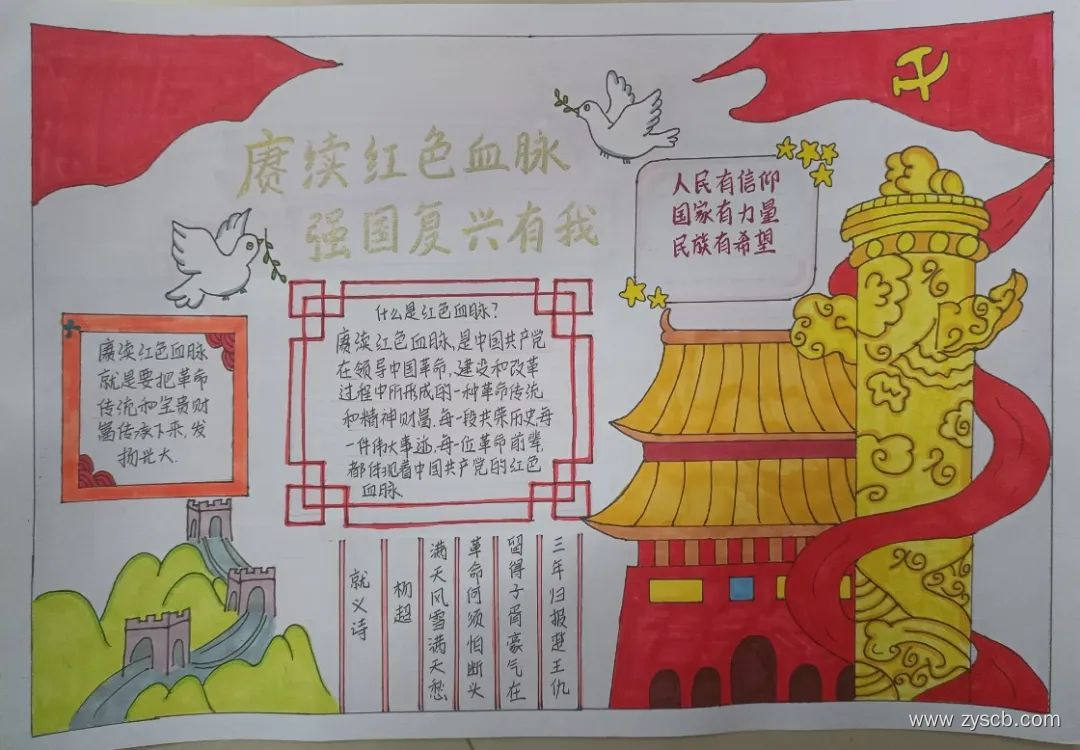 赓续红色血脉
强国复兴有我
人民有信仰
国家有力量
民族有希望
赓续红色血脉
就是要把革命
传统和宝贵财
富传承下来,发
扬光大.
什么是红色血脉?
赓续红色血脉,是中国共产党
在领导中国革命,建设和改革
过程中所形成的一种革命传统
和精神财富,每一段共荣历史,每
一件伟大事迹,每一位革命前辈,
都体现着中国共产党的红色
血脉.
就义诗
杨超
满天风雪满天愁
革命何须怕断头
留得子胥豪气在
三年归报楚王仇
www.zyscb.com